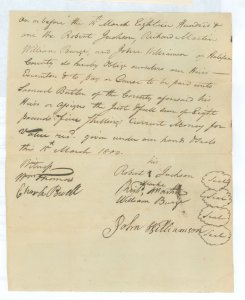 On or before the 1st March Eighteen Hundred &
one We Robert Jackson, Richard Martin
William Burge, and John Williamson of Halifax
County do hereby Oblige ourselves our Heirs
Executors & to pay or Cause to be paid unto
Samuel Butler of the County aforesaid his
Heirs or assigns the Just & full sum of Eight
pounds five Shillings Current Money for
Value recd. given under our hands & seals
this 1st March 1800.
Witness
Robert Jackson Seal
his
mark
Martin Seal
William Burge Seal
John Williamson Seal